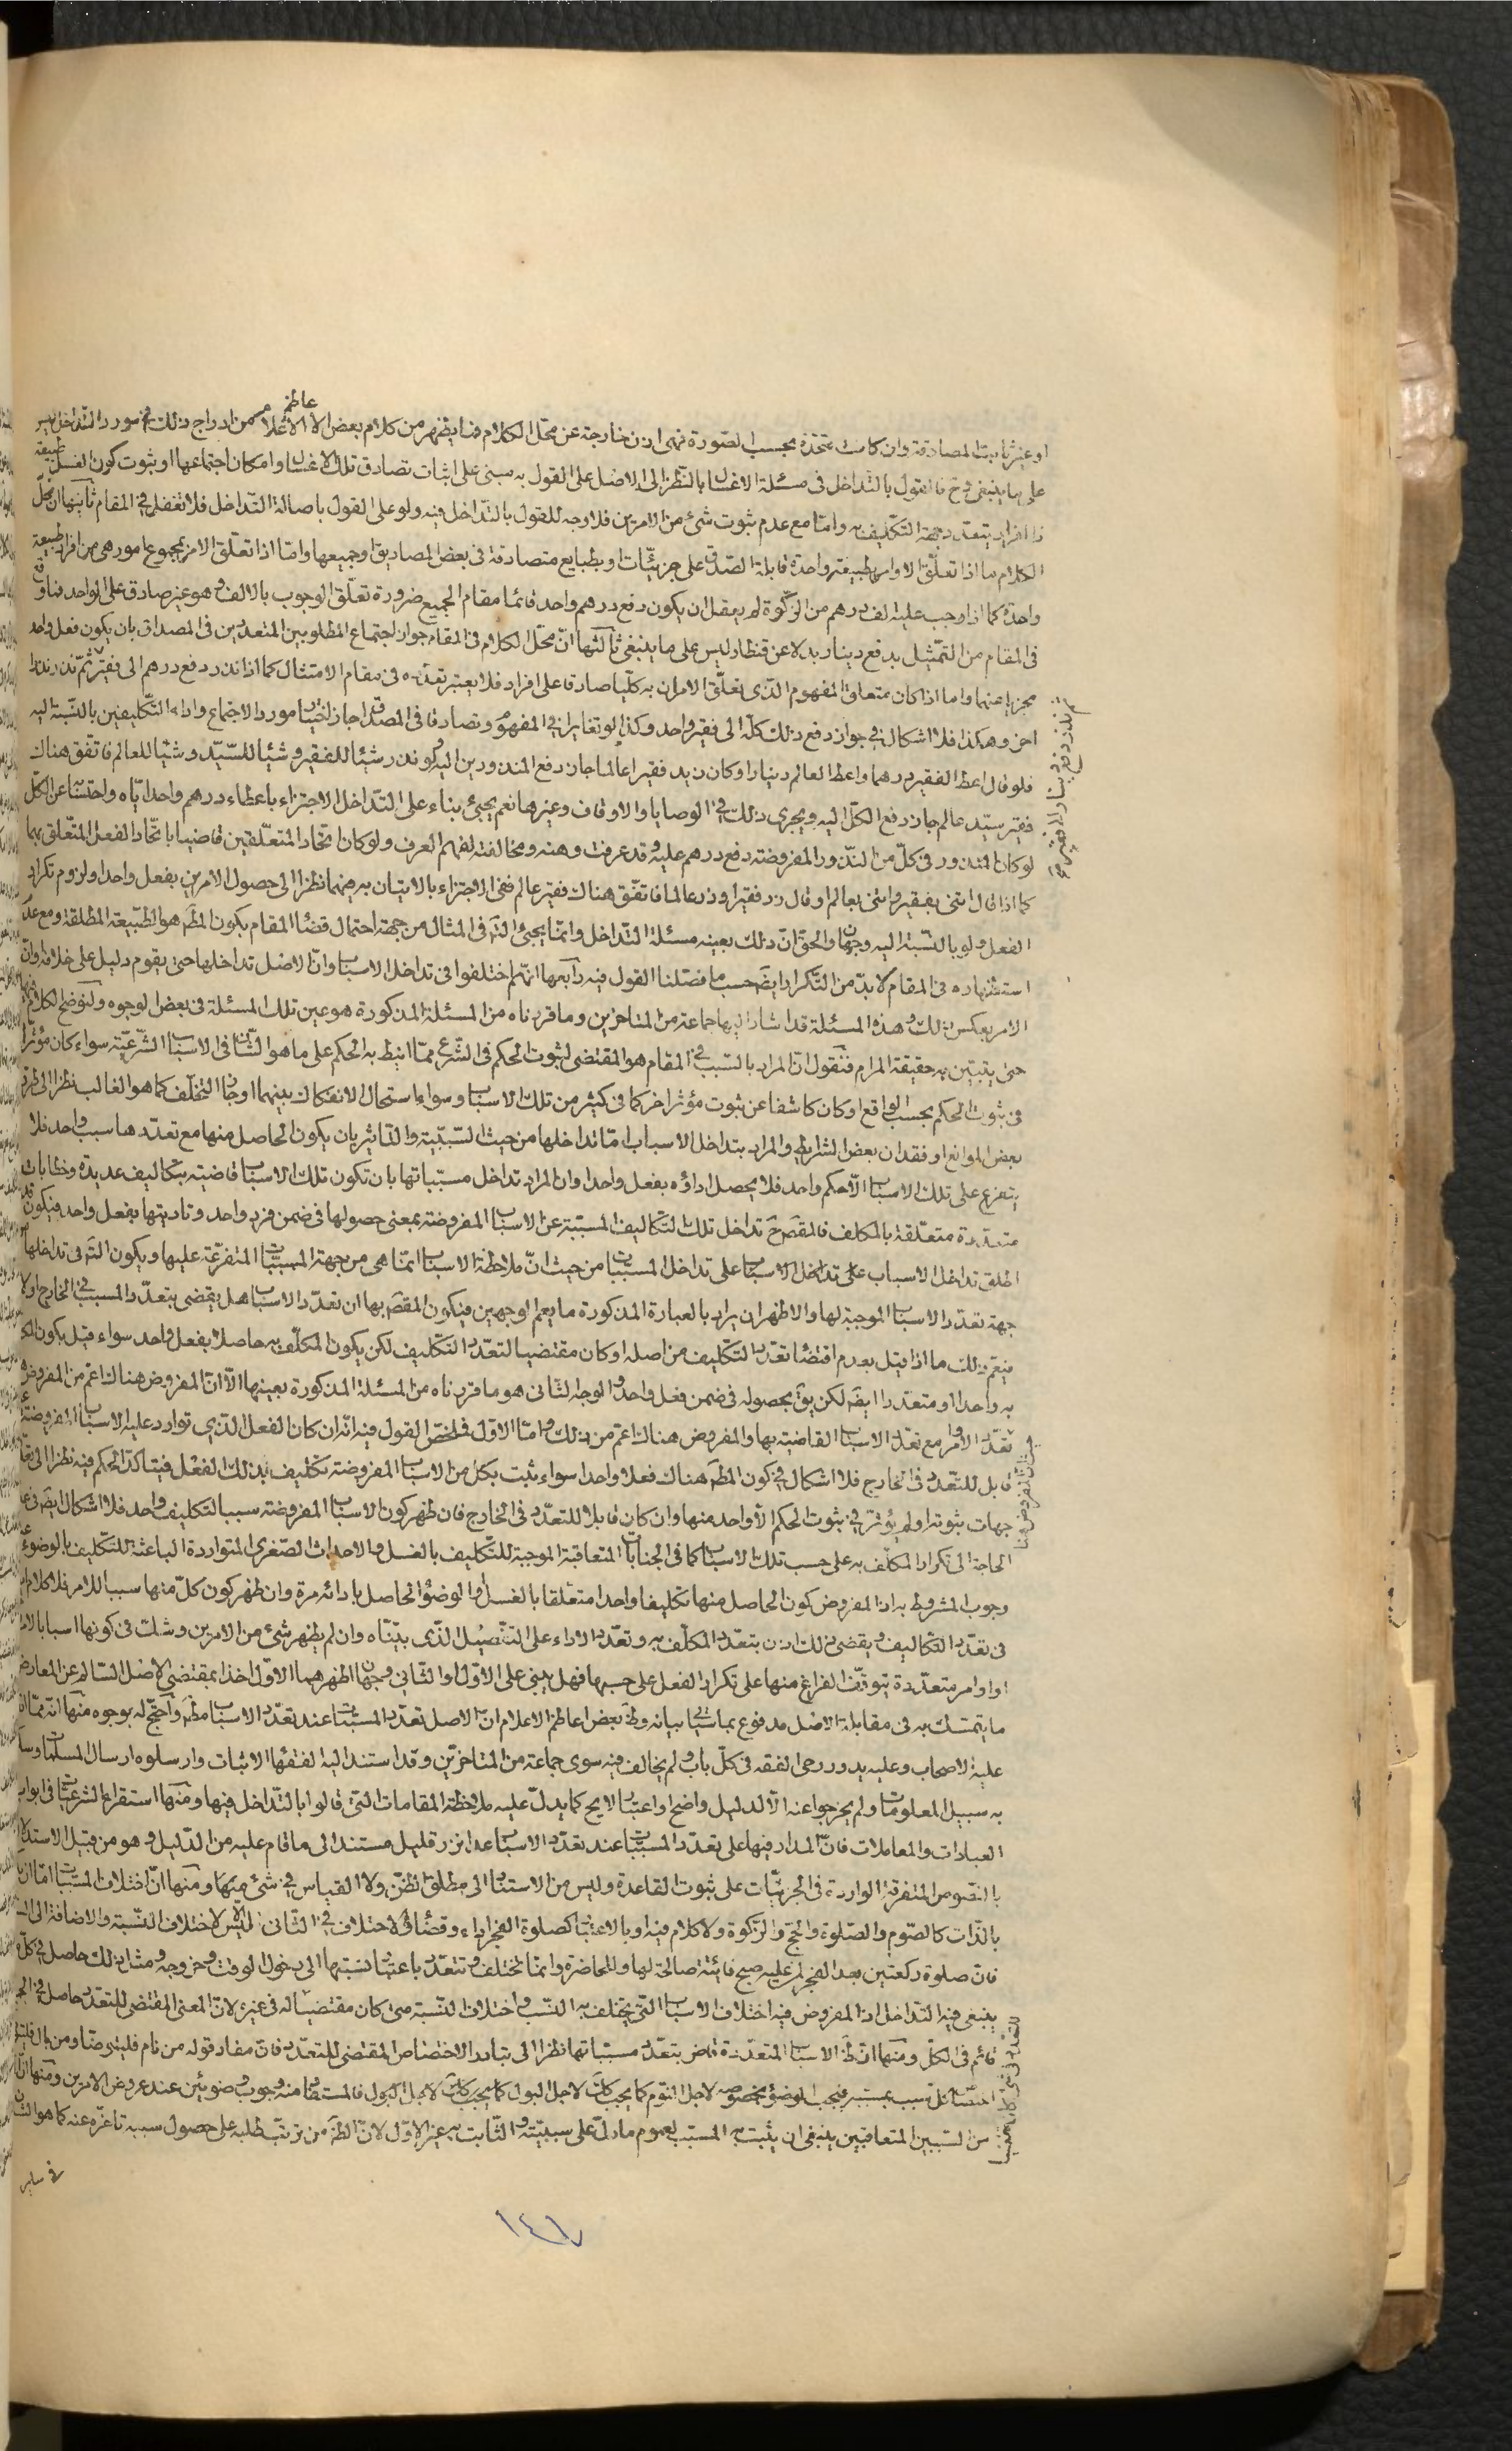 او غير ثابت المصادقة وان كانت متحدة بحسب الصورة فهى اذن خارجة عن محل الكلام فما يظهر من كلام بعض الاعاظم الاعلام من ادراج ذلك في مورد التداخل ليس
على ما ينبغى وح فالقول بالتداخل فى مسئلة الاغسال بالنظر الى الاصل على القول به مبنى على اثبات تصادق تلك الاغسال وامكان اجتماعها او ثبوت كون الغسل طبيعة
ذا افراد يتعدد جهة التكليف به واما مع عدم ثبوت شئ من الامرين فلا وجه للقول بالتداخل فيه ولو على القول باصالة التداخل فلا تغفل في المقام ثانيها ان محل
الكلام ما اذا تعلق الاوامر بطبيعة واحدة قابلة الصدق على جزئيات او بطبايع متصادقة فى بعض المصاديق او جميعها واما اذا تعلق الامر بمجموع امور هى من افراد طبيعة
واحدة كما اذا وجب عليه الف درهم من الزكوة لم يعقل ان يكون دفع درهم واحد قائما مقام الجميع ضرورة تعلق الوجوب بالالف وهو غير صادق على الواحد فما وقع
فى المقام من التمثيل بدفع دينار بدلا عن قنطار ليس على ما ينبغى ثالثها ان محل الكلام فى المقام جواز اجتماع المطلوبين المتعددين فى المصداق بان يكون فعل واحد
مجزيا عنهما واما اذا كان متعلق المفهوم الذى تعلق الامران به كليا صادقا على افراد فلا يعتبر تعدده فى مقام الامتثال كما اذا نذر دفع درهم الى فقير ثم نذر
اخر وهكذا فلا اشكال في جواز دفع ذلك كله الى فقير واحد وكذا لو تغايرا في المفهوم وتصادقا فى المصداق جاز اختيار مورد الاجتماع واداء التكليفين بالنسبة اليه
فلو قال اعط الفقير درهما واعط العالم دينارا وكان زيد فقيرا عالما جاز دفع المنذورين اليه ولو نذر شيئا للفقير وشيئا للسيد وشيئا للعالم فاتفق هناك
فقير سيد عالم جاز دفع الكل اليه ويجرى ذلك في الوصايا والاوقاف وغيرها نعم يجئ بناء على التداخل الاجتزاء باعطاء درهم واحد اياه عن الكل
لو كان المنذور فى كل من النذور المفروضة دفع درهم عليه وقد عرفت وهنه ومخالفته لفهم العرف ولو كان اتحاد المتعلقين قاضيا باتحاد الفعل المتعلق بهما
كما اذا قال ائتنى بفقير وائتنى بعالم او قال زر فقيرا وزر عالما فاتفق هناك فقير عالم ففى الاجتزاء بالاتيان به عنهما نظرا الى حصول الامرين بفعل واحد او لزوم تكرار
الفعل ولو بالنسبة اليه وجهان والحق ان ذلك بعينه مسئلة التداخل وانما يجئ فى المثال من جهة احتمال قضاء المقام بكون المطم هو الطبيعة المطلقة ومع عدم
استظهاره فى المقام لا بد من التكرار ايضا حسب ما فصلنا القول فيه رابعها انهم اختلفوا فى تداخل الاسباب وان الاصل تداخلها حتى يقوم دليل على خلافه وان
الامر بعكس ذلك وهذه المسئلة قد اشار اليها جماعة من المتاخرين وما قررناه من المسئلة المذكورة هو عين تلك المسئلة فى بعض الوجوه ولنوضح الكلام
حتى يتبين به حقيقة المرام فنقول ان المراد بالسبب في المقام هو المقتضى لثبوت الحكم فى الشرع مما انيط به الحكم على ما هو الشان فى الاسباب الشرعية سواء كان مؤثرا
فى ثبوت الحكم بحسب الواقع او كان كاشفا عن ثبوت مؤثر اخر كما فى كثير من تلك الاسباب وسواء استحال الانفكاك بينهما او جاز التخلف كما هو الغالب نظرا الى
بعض الموانع او فقدان بعض الشرايط والمراد بتداخل الاسباب اما تداخلها من حيث السببية والتاثير بان يكون الحاصل منها مع تعددها سبب واحد فلا
يتفرع على تلك الاسباب الا حكم واحد فلا يحصل اداؤه بفعل واحد وان المراد تداخل مسبباتها بان تكون تلك الاسباب قاضية بتكاليف عديدة وخطابات
متعددة متعلقة بالمكلف فالمقصود ح تداخل تلك التكاليف المسببة عن الاسباب المفروضة بمعنى حصولها فى ضمن فرد واحد وتاديتها بفعل واحد فيكون قد
اطلق تداخل الاسباب على تداخل المسببات من حيث ان ملاحظة الاسباب انما هى من جهة المسببات المتفرعة عليها ويكون فى تداخلها
جهة تعدد الاسباب الموجبة لها والاظهر ان يراد بالعبارة المذكورة ما يعم الوجهين فيكون المقصود بها ان تعدد الاسباب هل يقتضى بتعدد المسبب في الخارج او لا
فيعم ذلك ما اذا قيل بعدم اقتضاء تعدد التكليف من اصله او كان مقتضيا لتعدد التكليف لكن يكون المكلف به حاصلا بفعل واحد سواء قيل بكون
به واحدا او متعددا ايضا لكن يق بحصوله فى ضمن فعل واحد والوجه الثانى هو ما قررناه من المسئلة المذكورة بعينها الا ان المفروض هناك اعم من المفروض
تعدد الاوامر مع تعدد الاسباب القاضية بها والمفروض هناك اعم من ذلك واما الاول فملخص القول فيه انه ان كان الفعل الذى توارد عليه الاسباب المفروضة غير
قابل للتعدد فى الخارج فلا اشكال في كون المطم هناك فعلا واحدا سواء ثبت بكل من الاسباب المفروضة تكليف بذلك الفعل فيتاكد الحكم فيه نظرا الى
جهات ثبوته او لم يؤثر في ثبوت الحكم الا واحد منها وان كان قابلا للتعدد فى الخارج فان ظهر كون الاسباب المفروضة سببا لتكليف واحد فلا اشكال ايضا فى عدم
الحاجة الى تكرار المكلف به على حسب تلك الاسباب كما فى الجنابات المتعاقبة الموجبة للتكليف بالغسل والاحداث الصغرى المتواردة الباعثة للتكليف بالوضوء
وجوب المشروط به اذ المفروض كون الحاصل منها تكليفا واحدا متعلقا بالغسل او الوضوء الحاصل بادائه مرة وان ظهر كون كل منها سببا للامر فلا كلام
فى تعدد التكاليف ويقضى ذلك اذن بتعدد المكلف به وتعدد الاداء على التفصيل الذى بيناه وان لم يظهر شئ من الامرين وشك فى كونها اسبابا لامر
او اوامر متعددة يتوقف الفراغ منها على تكرار الفعل على حسبها فهل يبنى على الاول او الثانى وجهان اظهرهما الاول اخذا بمقتضى الاصل السالم عن المعارض
ما يتمسك به فى مقابلة الاصل مدفوع بما سيأتي بيانه وظ بعض اعاظم الاعلام ان الاصل تعدد المسببات عند تعدد الاسباب مطم واحتج له بوجوه منها انه مما اتفق
عليه الاصحاب وعليه يدور رحى الفقه فى كل باب ولم يخالف فيه سوى جماعة من المتاخرين وقد استند اليه الفقهاء الاثبات وارسلوه ارسال المسلمات وسلكوا
به سبيل المعلومات ولم يخرجوا عنه الا لدليل واضح او اعتبار لايح كما يدل عليه ملاحظة المقامات التى قالوا بالتداخل فيها ومنها استقراء الشرعيات فى ابواب
العبادات والمعاملات فان المدار فيها على تعدد المسببات عند تعدد الاسباب عدا نزر قليل مستند الى ما قام عليه من الدليل وهو من قبيل الاستدلال
بالنصوص المتفرقة الواردة فى الجزئيات على ثبوت القاعدة وليس من الاستناد الى مطلق الظن ولا القياس في شئ منها ومنها ان اختلاف المسببات اما ان
بالذات كالصوم والصلوة والحج والزكوة ولا كلام فيه او بالاعتبار كصلوة الفجر اداء وقضاء والاختلاف في الثانى ليس الا لاختلاف النسبة والاضافة الى
فان صلوة ركعتين بعد الفجر لمن عليه صبح فائتة صالحة لها وللحاضرة وانما تختلف وتتعدد باعتبار نسبتها الى دخول الوقت وخروجه ومثل ذلك حاصل في كل
ينبغى فيه التداخل اذ المفروض فيه اختلاف الاسباب التى يختلف به النسب واختلاف النسبة متى كان مقتضيا له فى غيره لان المعنى المقتضى للتعدد حاصل في
قائم فى الكل ومنها ان ظ الاسباب المتعددة قاض بتعدد مسبباتها نظرا الى تبادر الاختصاص المقتضى للتعدد فان مفاد قوله من نام فليتوضأ ومن بال فليتوضأ
اختصاص كل سبب بمسببه فيجب الوضوء بخصوصه لاجل النوم كما يجب كك لاجل البول فالمستفاد منه وجوب وضوئين عند عروض الامرين ومنها ان
من السببين المتعاقبين ينبغى ان يثبت به المسبب لعموم ما دل على سببيته والثابت به غير الاول لان الظ من ترتب طلبه على حصول سببه تاخره عنه كما هو الشان
في ساير
١٤٧